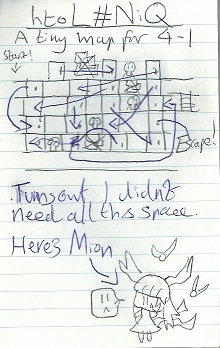 htoL#NiQ
A tiny map for 4-1
Start!
Escape!
Turns out I didn't
need all this space.
Heres Mion